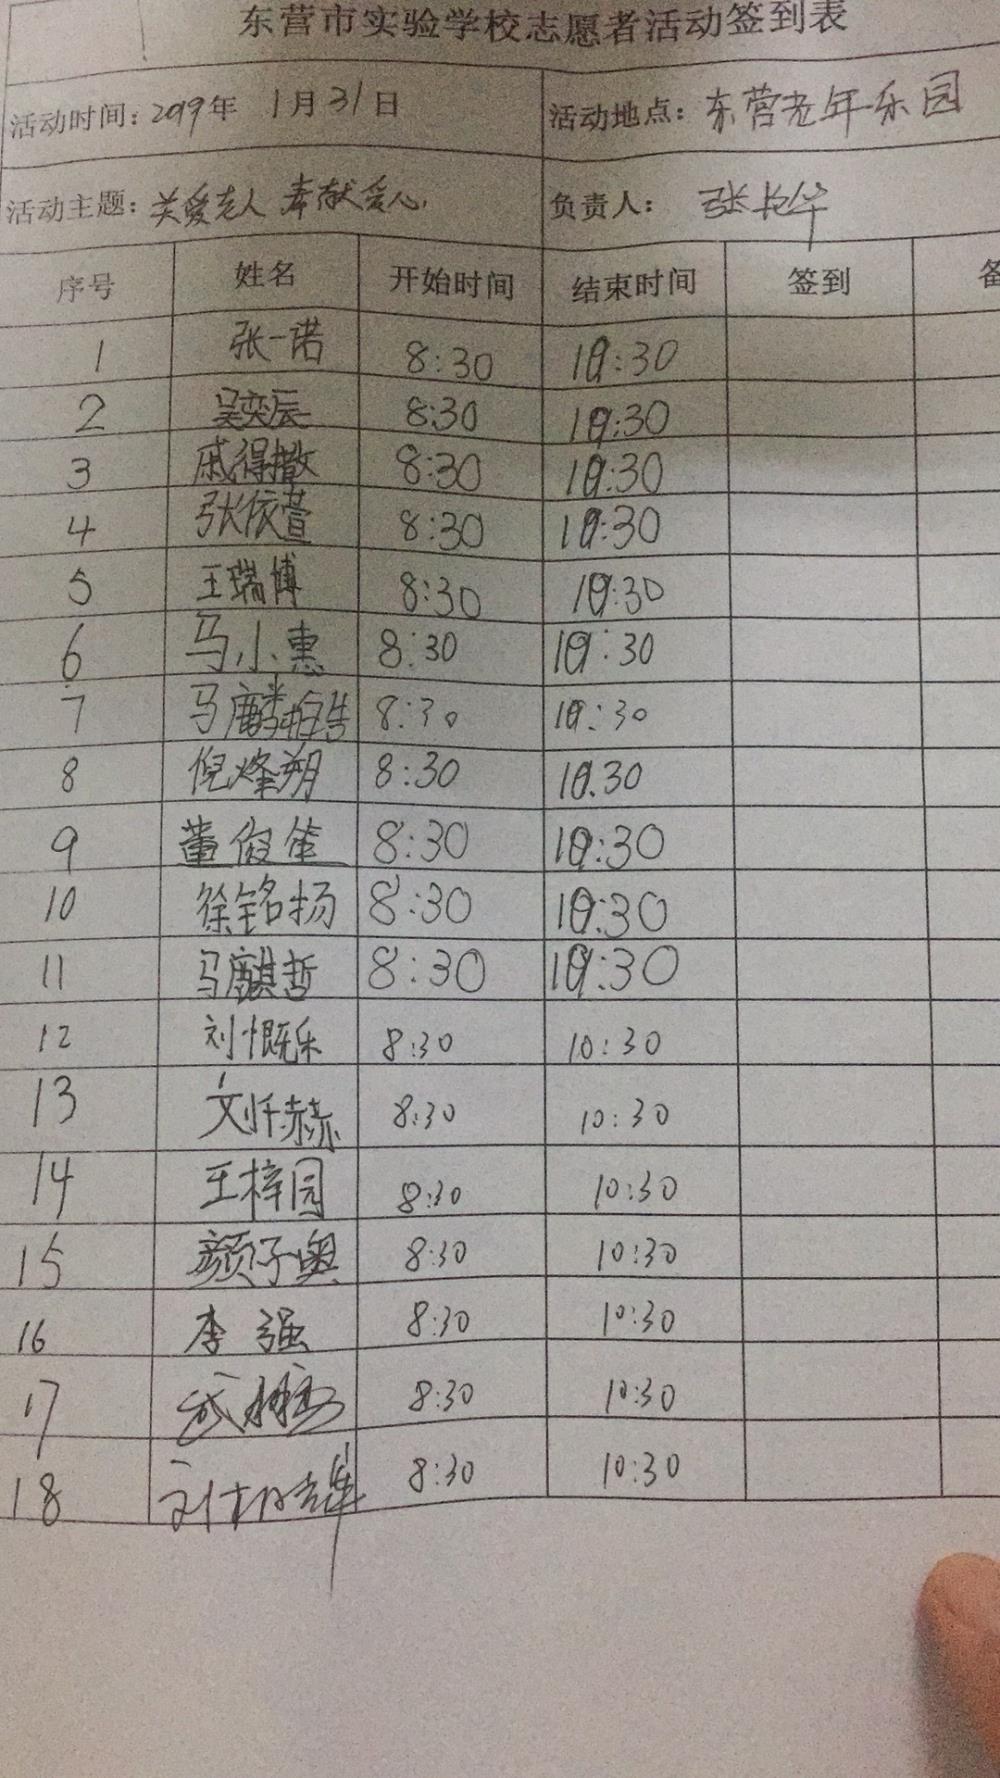 东营市实验学校志愿者活动签到表
活动时间：2019年 1月31日 活动地点：东营老年乐园
活动主题：关爱老人 奉献爱心. 负责人：张长华
序号 姓名 开始时间 结束时间 签到 备
1 张一诺 8:30 10:30
2 吴奕辰 8:30 10:30
3 戚得撒 8:30 10:30
4 张依萱 8:30 10:30
5 王瑞博 8:30 10:30
6 马小惠 8:30 10:30
7 马麟 8:30 10:30
8 倪烽朔 8:30 10.30
9 董俊 8:30 10:30
10 徐铭扬 8:30 10:30
11 马麒哲 8:30 10:30
12 刘慨乐 8:30 10:30
13 刘仟赫 8:30 10:30
14 王梓园 8:30 10:30
15 颜子奥 8:30 10:30
16 李强 8:30 10:30
17 8:30 10:30
18 刘 8:30 10:30